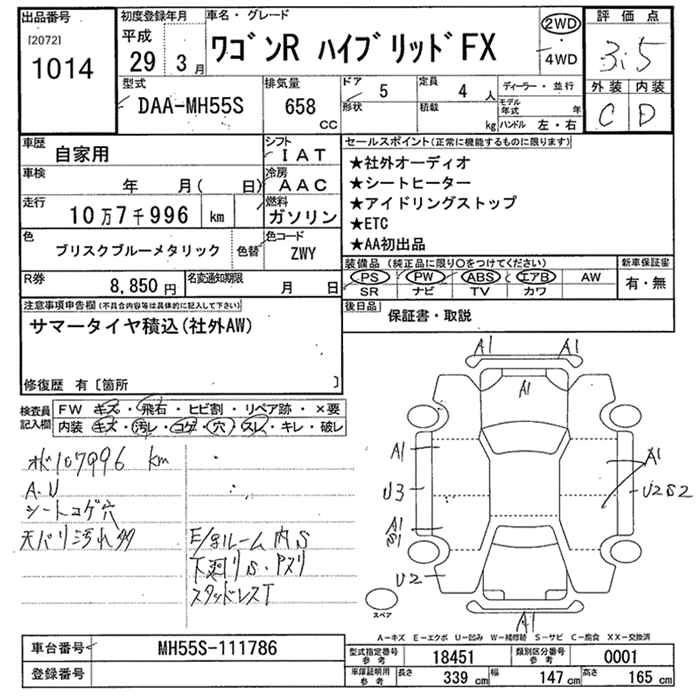 出品番号
[2072]
1014
初度登録年月
平成
29 3 月
車名・グレード
ワゴンR ハイブリッドFX
2WD
・
4WD
評価点
3.5
外装 内装
C D
型式
DAA-MH55S
排気量
658
CC
ドア 5
形状
定員 4 人
積載 kg
ディーラー・並行
モデル年式 年
ハンドル 左・右
車歴
自家用
シフト
IAT
車検
年 月( 日)
冷房
AAC
走行
10万7千996 km
燃料
ガソリン
色
ブリスクブルーメタリック
色替
色コード
ZWY
R券
8,850 円
名変通知期限
月 日
セールスポイント(正常に機能するものに限ります)
★社外オーディオ
★シートヒーター
★アイドリングストップ
★ETC
★AA初出品
装備品(純正品に限り○をつけてください)
PS PW ABS エアB AW
SR ナビ TV カワ
新車保証書
有・無
後日品
保証書・取説
注意事項申告欄(不具合内容等は具体的に記入して下さい)
サマータイヤ積込(社外AW)
修復歴 有〔箇所 〕
検査員
記入欄
FW キズ・飛石・ヒビ割・リペア跡・×要
内装 キズ・汚レ・コゲ・穴・スレ・キレ・破レ
107996 km
A.U
シートコゲ穴
天バリ汚れ
E/gルーム内S
下廻りS・アズリ
スタッドレスT
A1
A1
A1
A1
A1
U3
U2S2
A1
S1
U2
A1
スペア
A-キズ E-エクボ U-凹み W-補修跡 S-サビ C-腐食 XX-交換済
車台番号
MH55S-111786
登録番号
型式指定番号
参考
18451
類別区分番号
参考
0001
車庫証明用
参考
長さ 339 cm
幅 147 cm
高さ 165 cm